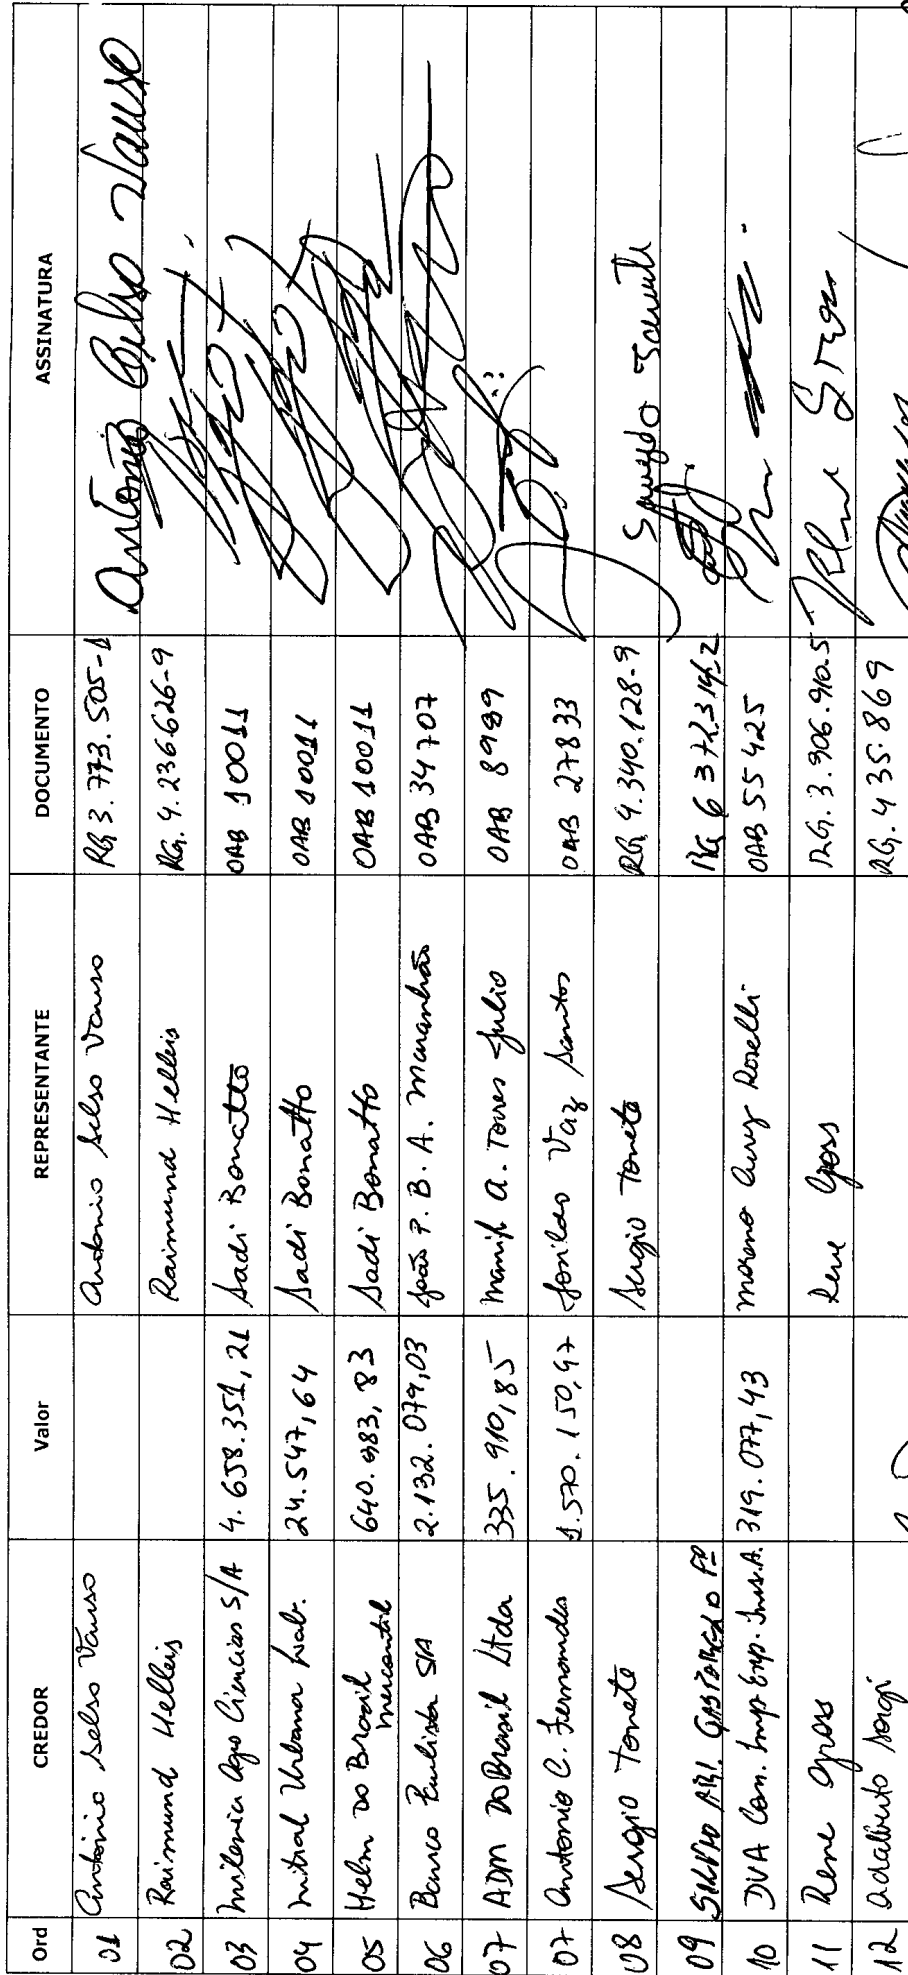 Ord CREDOR Valor REPRESENTANTE DOCUMENTO ASSINATURA
01 Antônio Selso Vauso Antonio Selso Vauso RG 3.773.505-1 Antônio
02 Raimund Helleis Raimund Helleis RG. 4.236626-9
03 Milenia Agro Ciencias S/A 4.658.351,21 Sadi Bonatto OAB 10011
04 Mitral Urbana 24.547,64 Sadi Bonatto OAB 10011
05 Helm do Brasil mercantil 640.983,83 Sadi Bonatto OAB 10011
06 Banco Paulista S/A 2.132.079,03 João P. B. A. Maranhão OAB 34707
07 ADM do Brasil Ltda 335.910,85 A. Torres Julio OAB 8989
07 Antonio C. Fernandes 1.570.150,97 Vaz Santos OAB 27833
08 Sergio Toneto Sergio Toneto RG 4.340.128-9
09 RG
10 DVA Com. Imp Exp. 319.077,43 Moreno Cury Roselli OAB 55425
11 Rene Gross Rene Gross RG. 3.906.910.5
12 Adalberto RG. 435.869